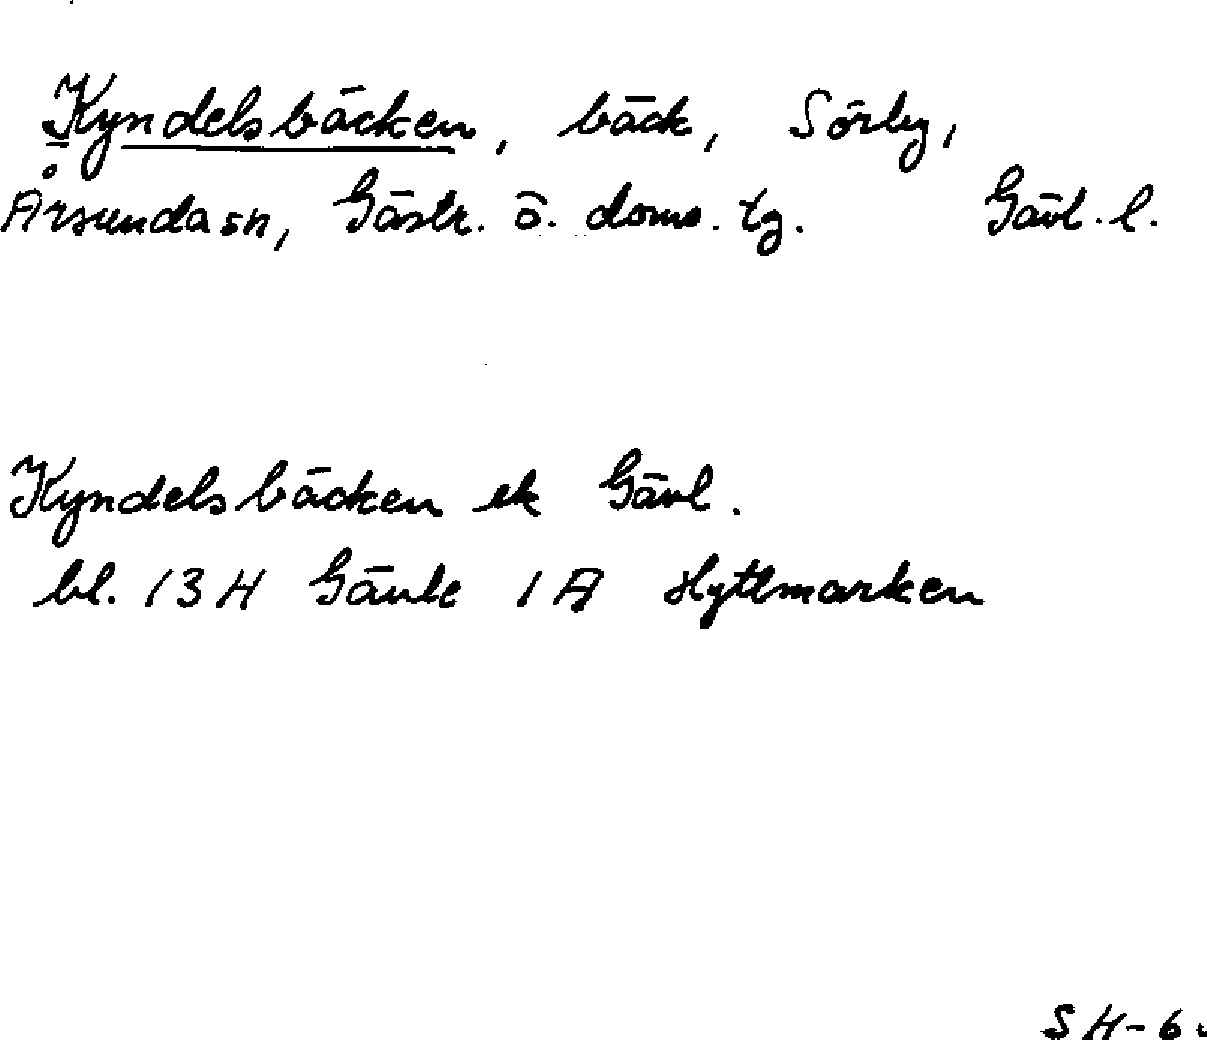 Kyndelsbäcken, bäck, Sörby,
Årsunda sn, Gästr. ö. doms. tg. Gävl. l.
Kyndelsbäcken ek Gävl.
bl. 13H Gävle 1A Hyttmarken
SH-6